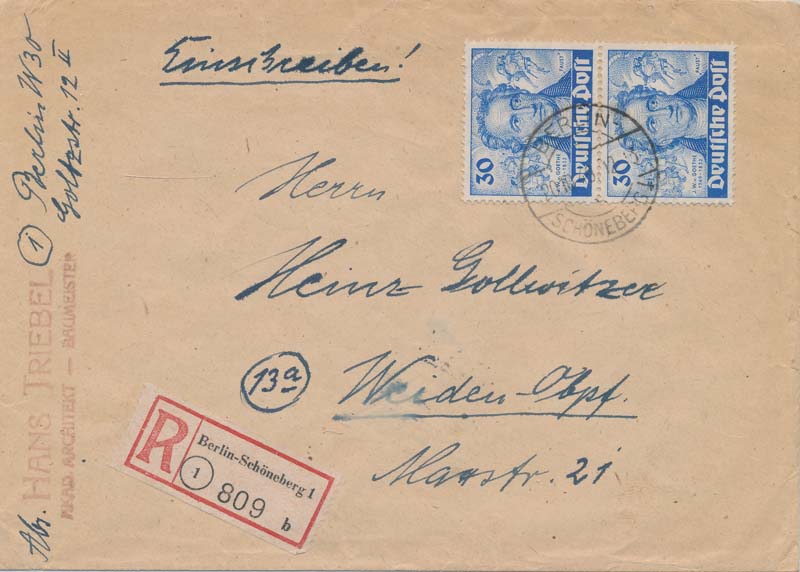 Einschreiben!
Herrn
Heinz Gollwitzer
13a Weiden-Obpf.
Maxstr. 21
Abs. HANS TRIEBEL (1) Berlin W30
AKAD. ARCHITEKT — BAUMEISTER
Goltzstr. 12 II
R
Berlin-Schöneberg 1
(1) 809 b
30
Deutsche Post
FAUST
J.W.v.GOETHE
30
Deutsche Post
FAUST
J.W.v.GOETHE
BERLIN
SCHÖNEBERG